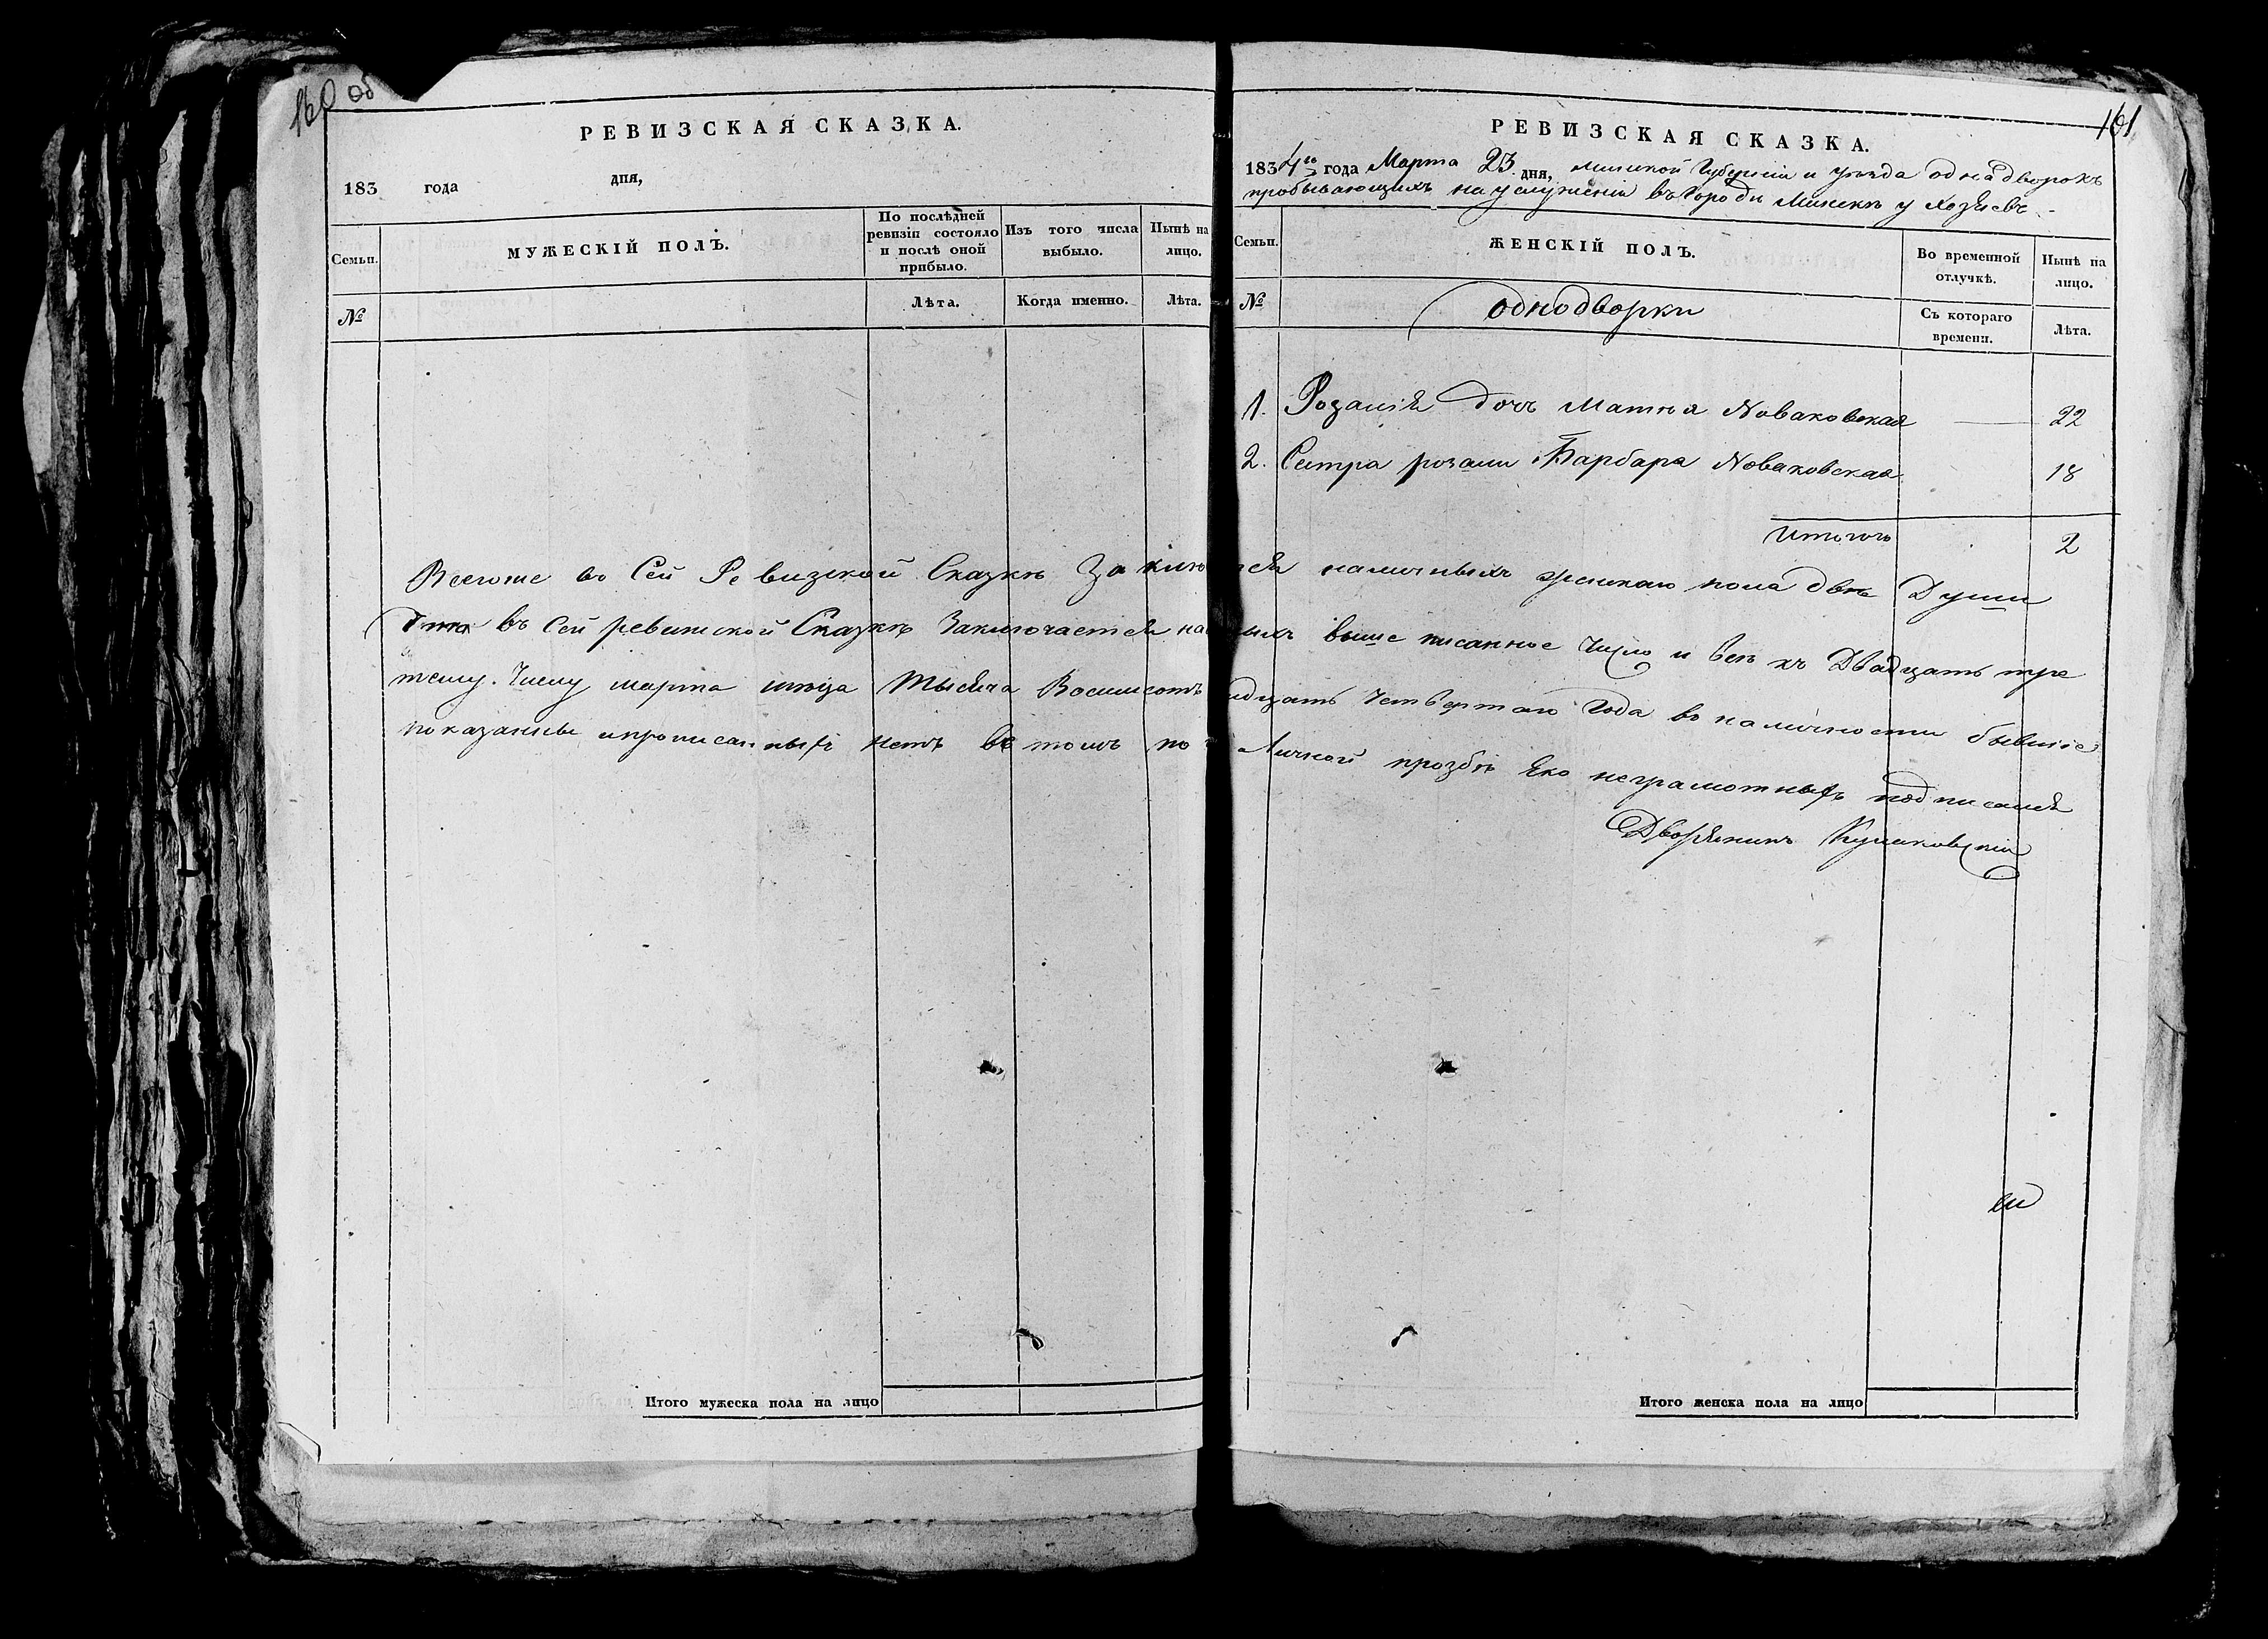 160 об
РЕВИЗСКАЯ СКАЗКА.
183 года дня,
Семьи.
МУЖЕСКІЙ ПОЛЪ.
По послѣдней ревизіи состояло и послѣ оной прибыло.
Изъ того числа выбыло.
Нынѣ на лицо.
№
Лѣта.
Когда именно.
Лѣта.
161
РЕВИЗСКАЯ СКАЗКА.
1834го года Марта 23 дня, Минской Губерніи и уезда однадворокъ
пробывающихъ на услуженіи въ Городе Минскѣ у Хозяевъ
Семьи.
ЖЕНСКІЙ ПОЛЪ.
Во временной отлучкѣ.
Нынѣ на лицо.
№
однодворки
Съ котораго времени.
Лѣта.
1. Розалія дочъ Матѣя Новаковская 22
2. Сестра розали Барбара Новаковская 18
Итогоъ 2
Всегоже во Сей Ревизской Сказкѣ Заклю тся наличныхъ женскаго пола двѣ Души
въ Сей ревизской Сказкѣ Заключается на ныхъ выше писанное Число и всѣ къ Двадцать тре
тему Числу марта мѣсца Тысяча Восимсотъ идцать Четвертаго Года въ наличности бывшіе
показанные и прописанныхъ нетъ въ томъ по Личной прозбѣ Яко неграмотныхъ подписался
Дворянинъ
Итого мужеска пола на лицо
Итого женска пола на лицо